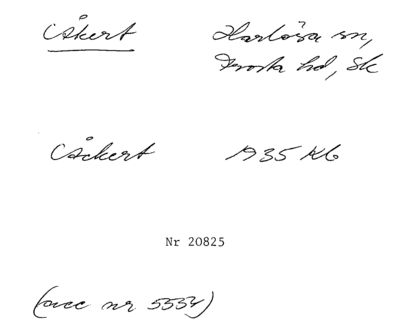 Åkert Harlösa sn,
Frosta hd, Sk
Åckert 1935 Kb
Nr 20825
(acc nr 5554)